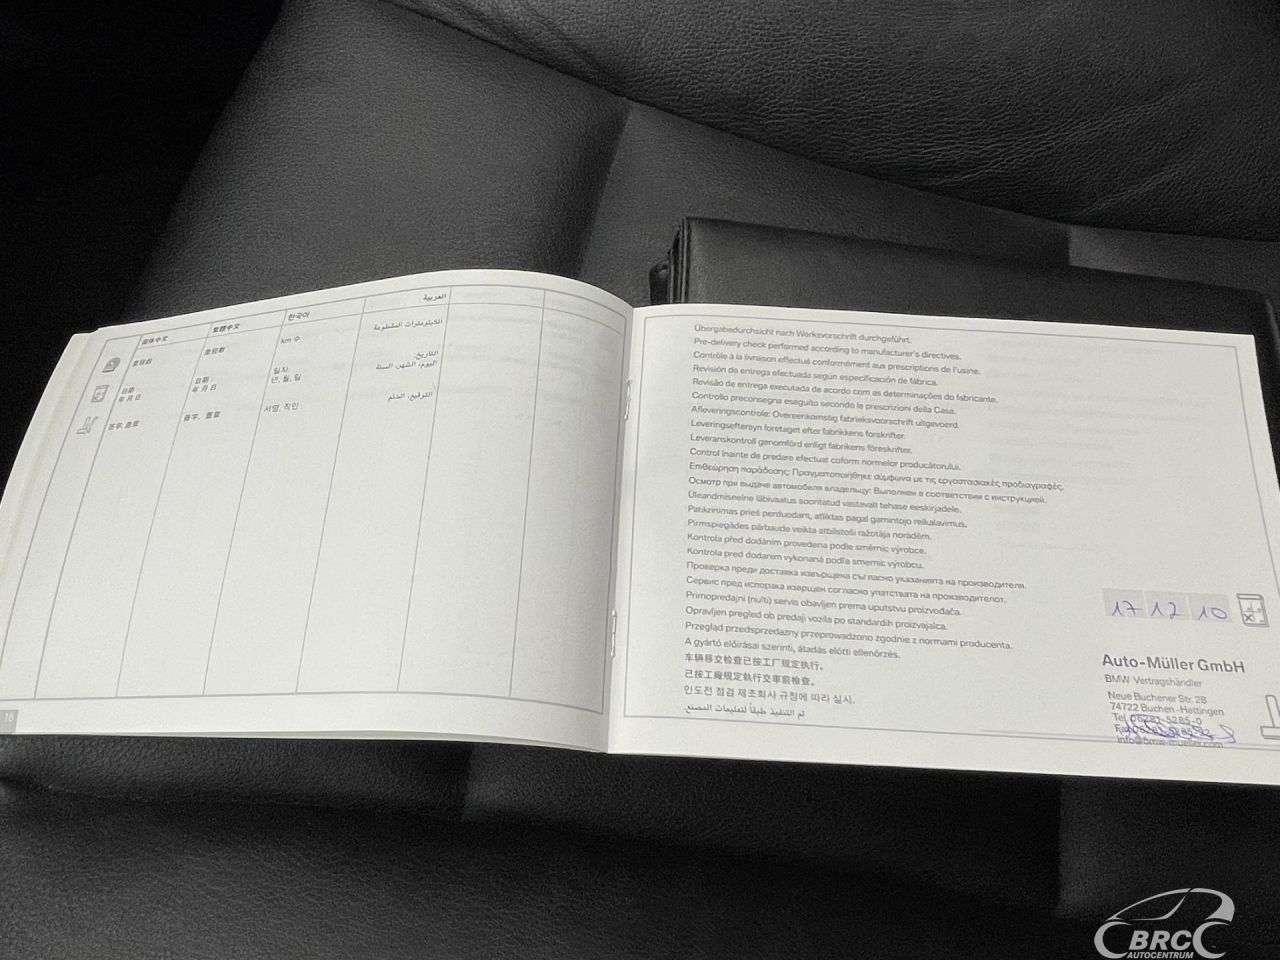 简体中文
繁體中文
한국어
العربية
里程数
里程數
km 수
الكيلومترات المقطوعة
日期:
年 月 日
日期:
年 月 日
일자:
년, 월, 일
التاريخ:
اليوم، الشهر، السنة
签字, 盖章
簽字, 蓋章
서명, 직인
التوقيع، الختم
16
Übergabedurchsicht nach Werksvorschrift durchgeführt.
Pre-delivery check performed according to manufacturer's directives.
Contrôle à la livraison effectué conformément aux prescriptions de l'usine.
Revisión de entrega efectuada según especificación de fábrica.
Revisão de entrega executada de acordo com as determinações do fabricante.
Controllo preconsegna eseguito secondo le prescrizioni della Casa.
Afleveringscontrole: Overeenkomstig fabrieksvoorschrift uitgevoerd.
Leveringseftersyn foretaget efter fabrikkens forskrifter.
Leveranskontroll genomförd enligt fabrikens föreskrifter.
Control înainte de predare efectuat coform normelor producătorului.
Επιθεώρηση παράδοσης: Πραγματοποιήθηκε σύμφωνα με τις εργοστασιακές προδιαγραφές.
Осмотр при выдаче автомобиля владельцу: Выполнен в соответствии с инструкцией.
Üleandmiseelne läbivaatus sooritatud vastavalt tehase eeskirjadele.
Patikrinimas prieš perduodant, atliktas pagal gamintojo reikalavimus.
Pirmspiegādes pārbaude veikta atbilstoši ražotāja norādēm.
Kontrola před dodáním provedena podle směrnic výrobce.
Kontrola pred dodaním vykonaná podľa smerníc výrobcu.
Проверка преди доставка извършена съгласно указанията на производителя.
Сервис пред испорака извршен согласно упатствата на производителот.
Primopredajni (nulti) servis obavljen prema uputstvu proizvođača.
Opravljen pregled ob predaji vozila po standardih proizvajalca.
Przegląd przedsprzedażny przeprowadzono zgodnie z normami producenta.
A gyártó előírásai szerinti, átadás előtti ellenőrzés.
车辆移交检查已按工厂规定执行。
已按工廠規定執行交車前檢查。
인도전 점검 제조회사 규정에 따라 실시.
تم التنفيذ طبقاً لتعليمات المصنع.
17 12 10
Auto-Müller GmbH
BMW Vertragshändler
Neue Buchener Str. 28
74722 Buchen-Hettingen
Tel. 06281-5285-0
info@bmw-mueller.com
BRC
AUTOCENTRUM